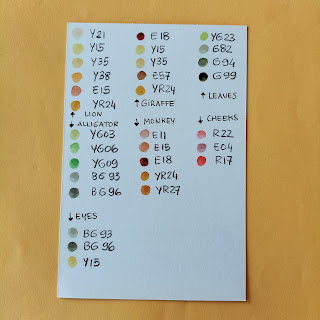 Y21
Y15
Y35
Y38
E15
YR24
↑ LION
↓ ALLIGATOR
YG03
YG06
YG09
BG93
BG96
↓ EYES
BG93
BG96
Y15
E18
Y15
Y35
E57
YR24
↑ GIRAFFE
↓ MONKEY
E11
E15
E18
YR24
YR27
YG23
G82
G94
G99
↑ LEAVES
↓ CHEEKS
R22
E04
R17